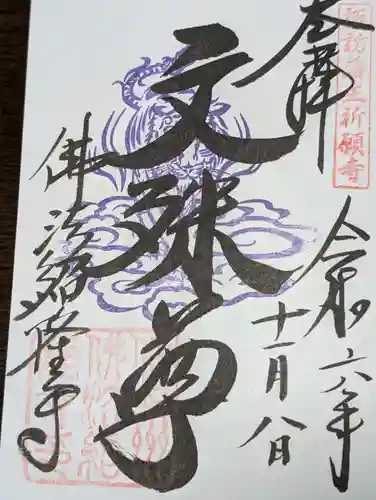 奉拝
諏訪藩主祈願寺
令和六年
十一月八日
文殊尊
佛法紹隆寺